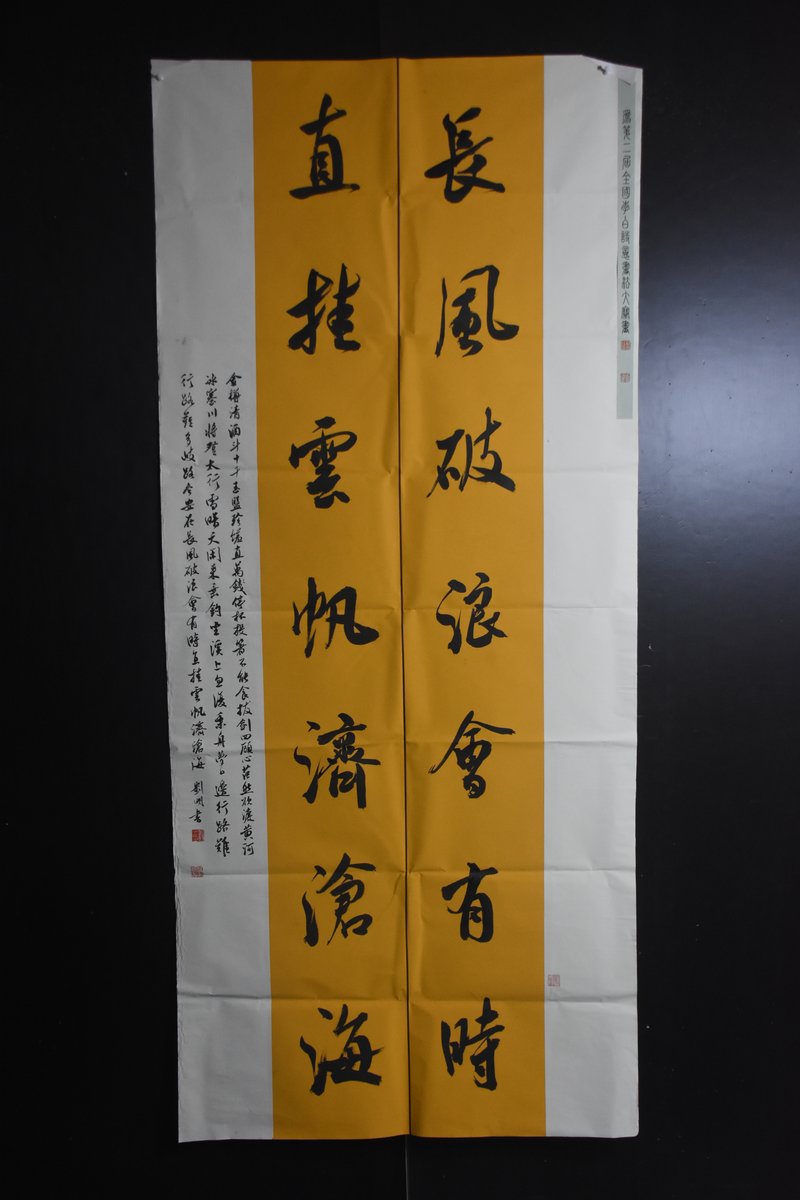 為第二屆全國李白詩書法大賽書
長風破浪會有時
直挂雲帆濟滄海
金樽清酒斗十千玉盤珍饈直萬錢停杯投箸不能食拔劍四顧心茫然欲渡黄河
冰塞川將登太行雪暗天閑來垂釣坐溪上忽復乘舟夢日邊行路難
行路難多岐路今安在長風破浪會有時直挂雲帆濟滄海 劉明書